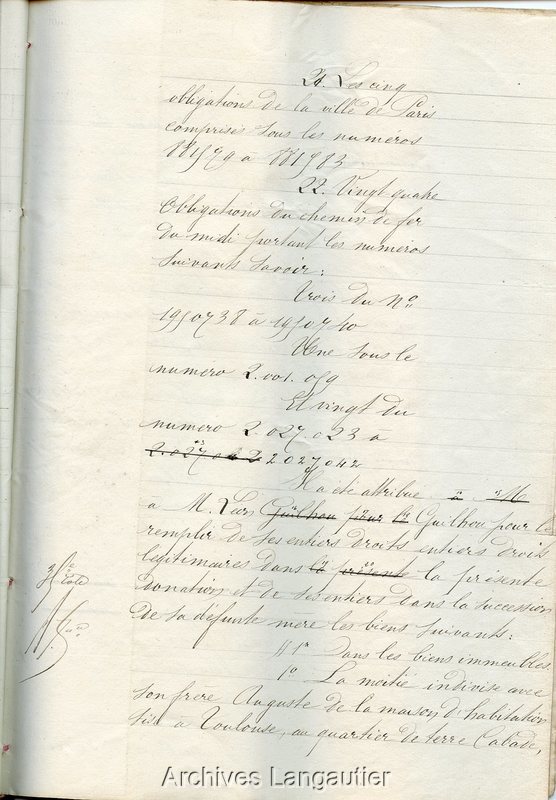 21. Les cinq
obligations de la ville de Paris
comprises sous les numéros
881579 à 881583.
22. Vingt quatre
Obligations du chemin de fer
du midi portant les numéros
suivants savoir:
Trois du No
1950738 à 1950740
Une sous le
numéro 2.001.059
Et vingt du
numéro 2.027.023 à
2.027.042 2027042
Il a été attribué à M
à M. Léon Guilhou pour le Guilhou pour le
remplir de ses entiers droits entiers droits
légitimaires dans la présente la présente
donation et de ses entiers dans la succession
de sa défunte mère les biens suivants:
3e Lote
§ 1er Dans les biens immeubles
1o La moitié indivise avec
son frère Auguste de la maison d'habitation
sise à Toulouse, au quartier de terre Cabade,
Archives Langautier